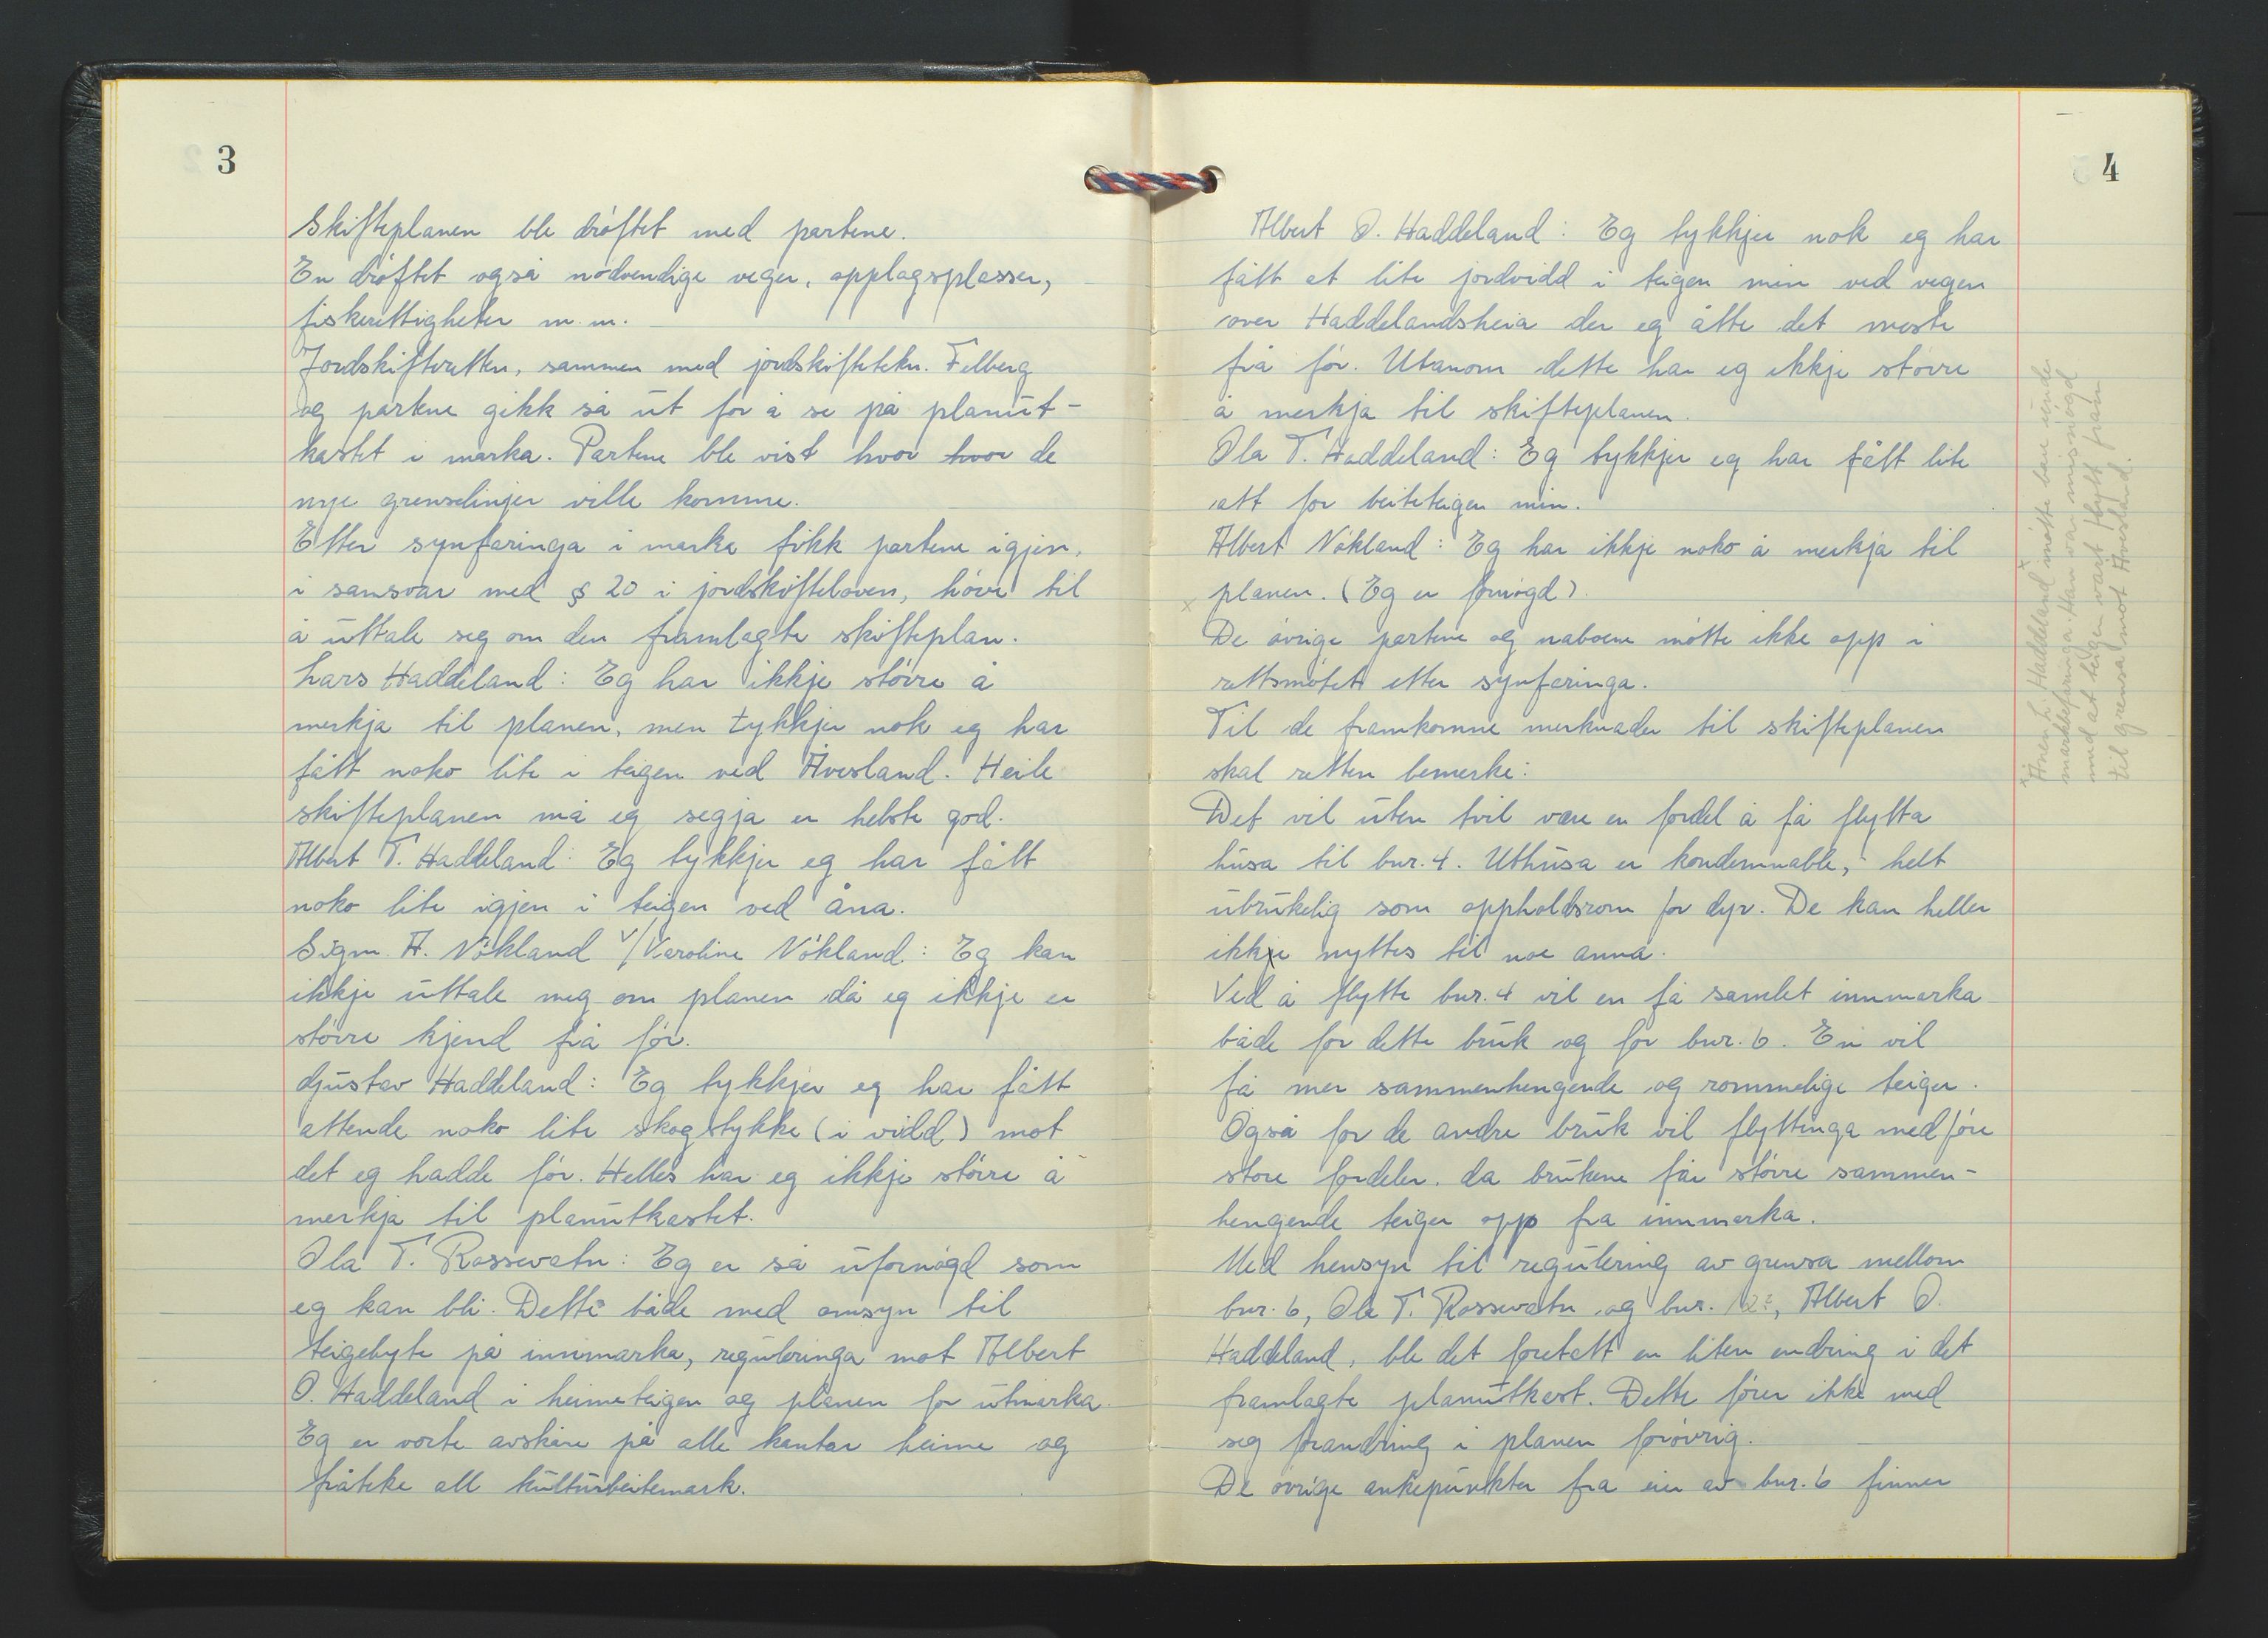 3
Skifteplanen ble drøftet med partene.
En drøftet også nødvendige veger, opplagsplasser,
fiskerettigheter m.m.
Jordskifteretten, sammen med jordskiftetekn. Felberg
og partene gikk så ut for å se på planut-
kastet i marka. Partene ble vist hvor hvor de
nye grenselinjer ville komme.
Etter synfaringa i marka fikk partene igjen,
i samsvar med § 20 i jordskifteloven, høve til
å uttale seg om den framlagte skifteplan.
Lars Haddeland: Eg har ikkje større å
merkja til planen, men tykkjer nok eg har
fått noko lite i teigen ved Åvesland. Heile
skifteplanen må eg segja er helste god.
Albert T. Haddeland: Eg tykkjer eg har fått
noko lite igjen i teigen ved åna.
Sigm. A. Nökland v/Karoline Nökland: Eg kan
ikkje uttale meg om planen då eg ikkje er
større kjend frå før.
Gjustav Haddeland: Eg tykkjer eg har fått
attende noko lite skogstykke (i vidd) mot
det eg hadde før. Helles har eg ikkje større å
merkja til planutkastet.
Ola T. Rossevatn: Eg er så ufornøgd som
eg kan bli. Dette både med omsyn til
teigebyte på innmarka, reguleringa mot Albert
O. Haddeland i heimeteigen og planen for utmarka.
Eg er vorte avskåre på alle kantar heime og
fråteke all kulturbeitemark.
4
Albert O. Haddeland: Eg tykkjer nok eg har
fått et lite jordvidd i teigen min ved vegen
over Haddelandsheia der eg åtte det meste
frå før. Utanom dette har eg ikkje større
å merkja til skifteplanen.
Ola T. Haddeland: Eg tykkjer eg har fått lite
att for beiteteigen min.
Albert Nökland: Eg har ikkje noko å merkja til
x planen. (Eg er fornøgd).
De øvrige partene og naboene møtte ikke opp i
rettsmøtet etter synfaringa.
Til de framkomne merknader til skifteplanen
skal retten bemerke:
Det vil uten tvil være en fordel å få flytta
husa til bnr. 4. Uthusa er kondemnable, helt
ubrukelig som oppholdsrom for dyr. De kan heller
ikkje nyttes til noe anna.
Ved å flytte bnr. 4 vil en få samlet innmarka
både for dette bruk og for bnr. 6. En vil
få mer sammenhengende og rommelige teiger.
Også for de andre bruk vil flyttinga medføre
store fordeler, da brukene får større sammen-
hengende teiger opp fra innmarka.
Med hensyn til regulering av grensa mellom
bnr. 6, Ola T. Rossevatn og bnr. 12, Albert O.
Haddeland, ble det foretatt en liten endring i det
framlagte planutkast. Dette fører ikke med
seg forandring i planen forøvrig.
De øvrige ankepunkter fra eier av bnr. 6 finner
x Haddeland møtte bare under
markbefaringa. Han var misnøgd
med at teigen vart flytt fram
til grensa mot Åvesland.